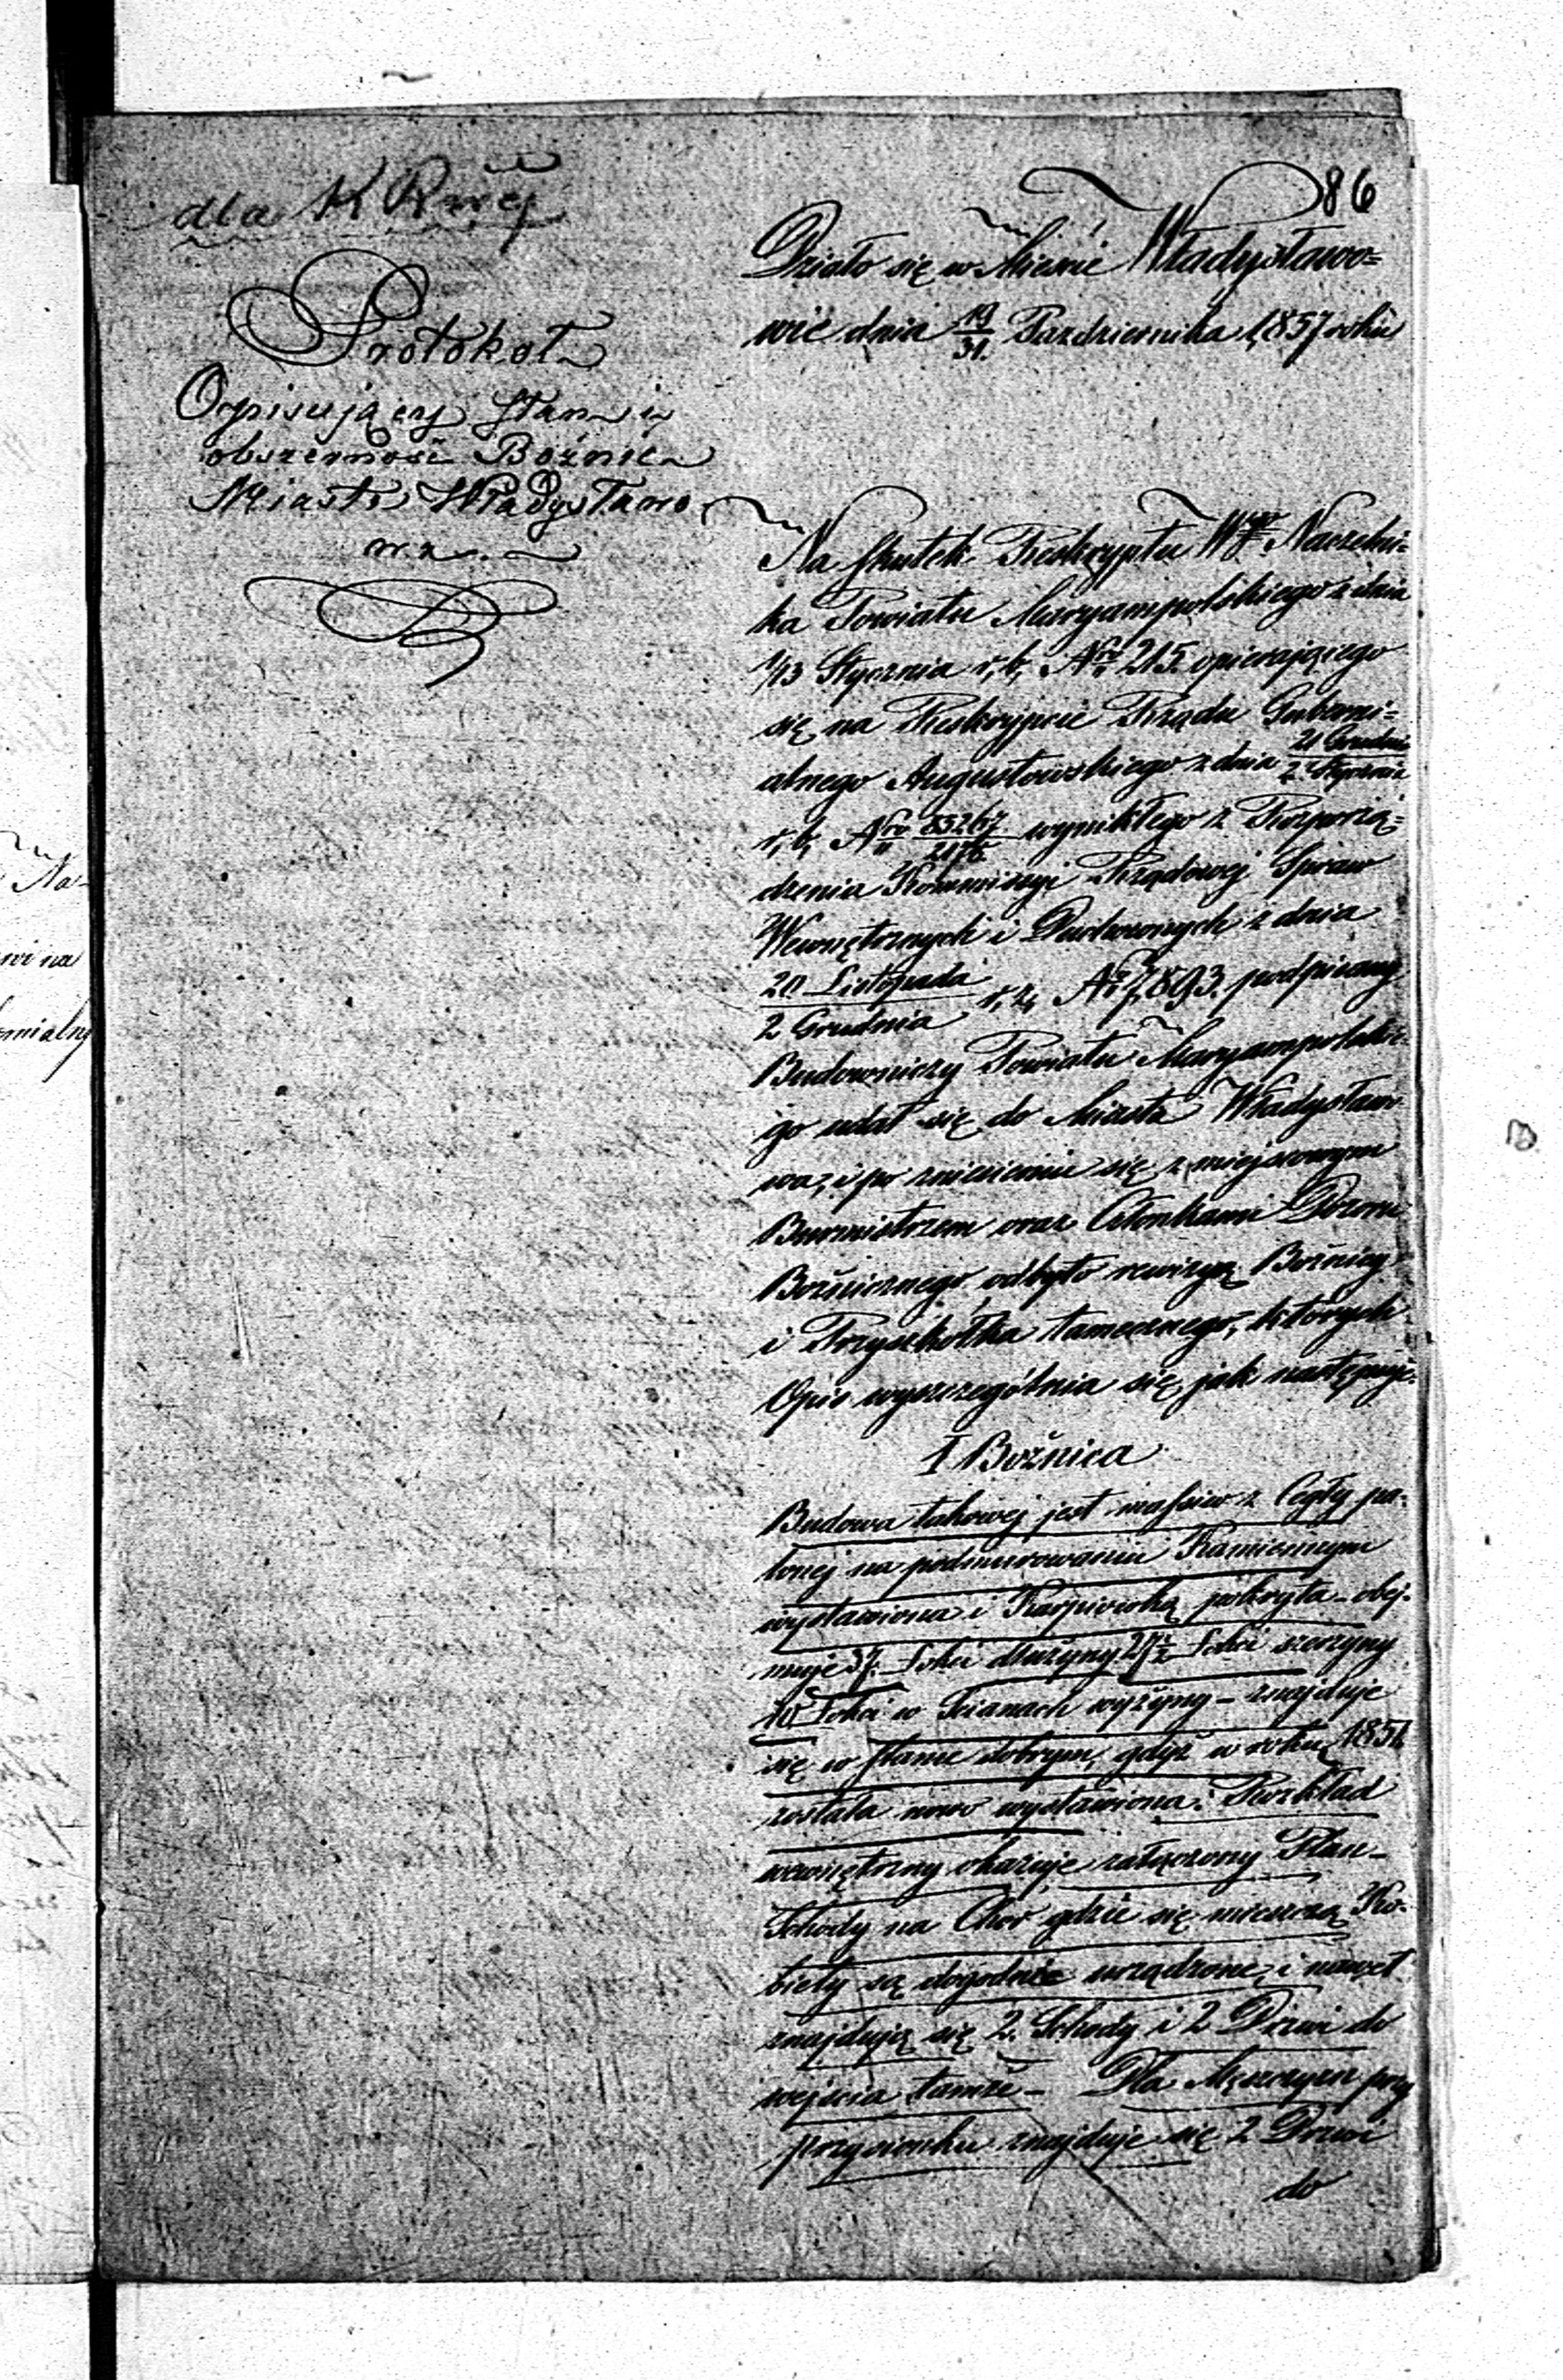 86
dla K Rwej
Protokoł
Opisujący stan i
obszerność Bóżnic
Miasta Władysławo
wa.
Działo się w Mieście Władysławo=
wie dnia 19/31. Października 1857 roku
Na skutek Reskryptu Wgo Naczelni=
ka Powiatu Maryampolskiego z dnia
1/13 Stycznia r, b, Nro 215. opierającego
się na Reskrypcie Rządu Guberni=
alnego Augustowskiego z dnia 21 Grudnia / 2 Stycznia
r, b, Nro wynikłego z Rozporzą=
dzenia Kommissyi Rządowej Spraw
Wewnętrznych i Duchownych z dnia
20 Listopada / 2 Grudnia r, z, Nr 7,893. podpisany
Budowniczy Powiatu Maryampolskie
go udał się do Miasta Władysławo
wa, i po zniesieniu się z miejscowym
Burmistrzem oraz Członkami Dozoru
Bożniczego, odbyło rewizyą Bożnicy
i Przyszkółka tamecznego, których
Opis wyszczególnia się, jak następuje:
I Bożnica
Budowa takowej jest massiw z Cegły pa=
lonej na podmurowaniu Kamiennym
wystawiona i Karpiowką pokryta – obej=
muje 37. Łokci dłużyny 27½ Łokci szerzyny
10 Łokci w Scianach wyżyny – znajduje
się w stanie dobrym, gdyż w roku
została nowo wystawiona. Rozkład
wewnętrzny okazuje załączony Plan –
Schody na Chór gdzie się mieszczą Ko=
biety są dogodnie urządzone, i nawet
znajdują się 2. Schody i 2 Drzwi do
wejscia tamże – Dla Męszczyzn przy
przysionku znajduje się 2 Drzwi
do